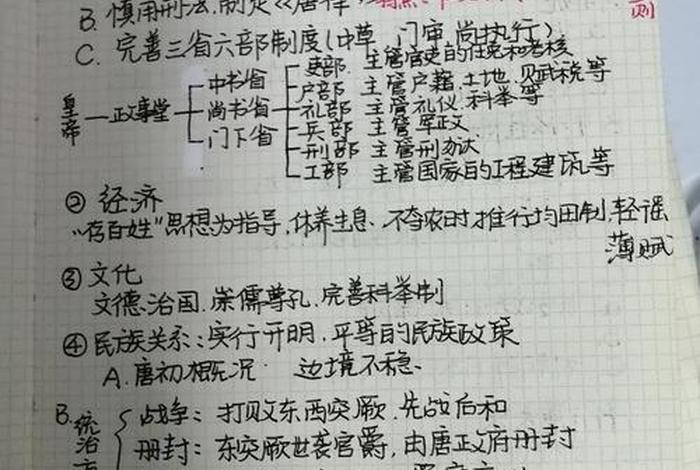 B. 慎用刑法,制定《唐律
则
C. 完善三省六部制度(中草 门审 尚执行)
吏部 主管官吏的任免和考核
中书省 户部 主管户籍、土地、贝武税等
皇帝—政事堂 尚书省 礼部 主管礼仪、科举等
门下省 兵部 主管军政
刑部 主管刑办法
工部 主管国家的工程建筑等
② 经济
“存百姓”思想为指导,休养生息、不夺农时,推行均田制,轻徭
薄赋
③ 文化
文德治国.崇儒尊孔.完善科举制
④ 民族关系:实行开明,平等的民族政策
A. 唐初概况 边境不稳
B. 战争:打败东西突厥,先战后和
统治 册封:东突厥世袭官爵,由唐政府册封